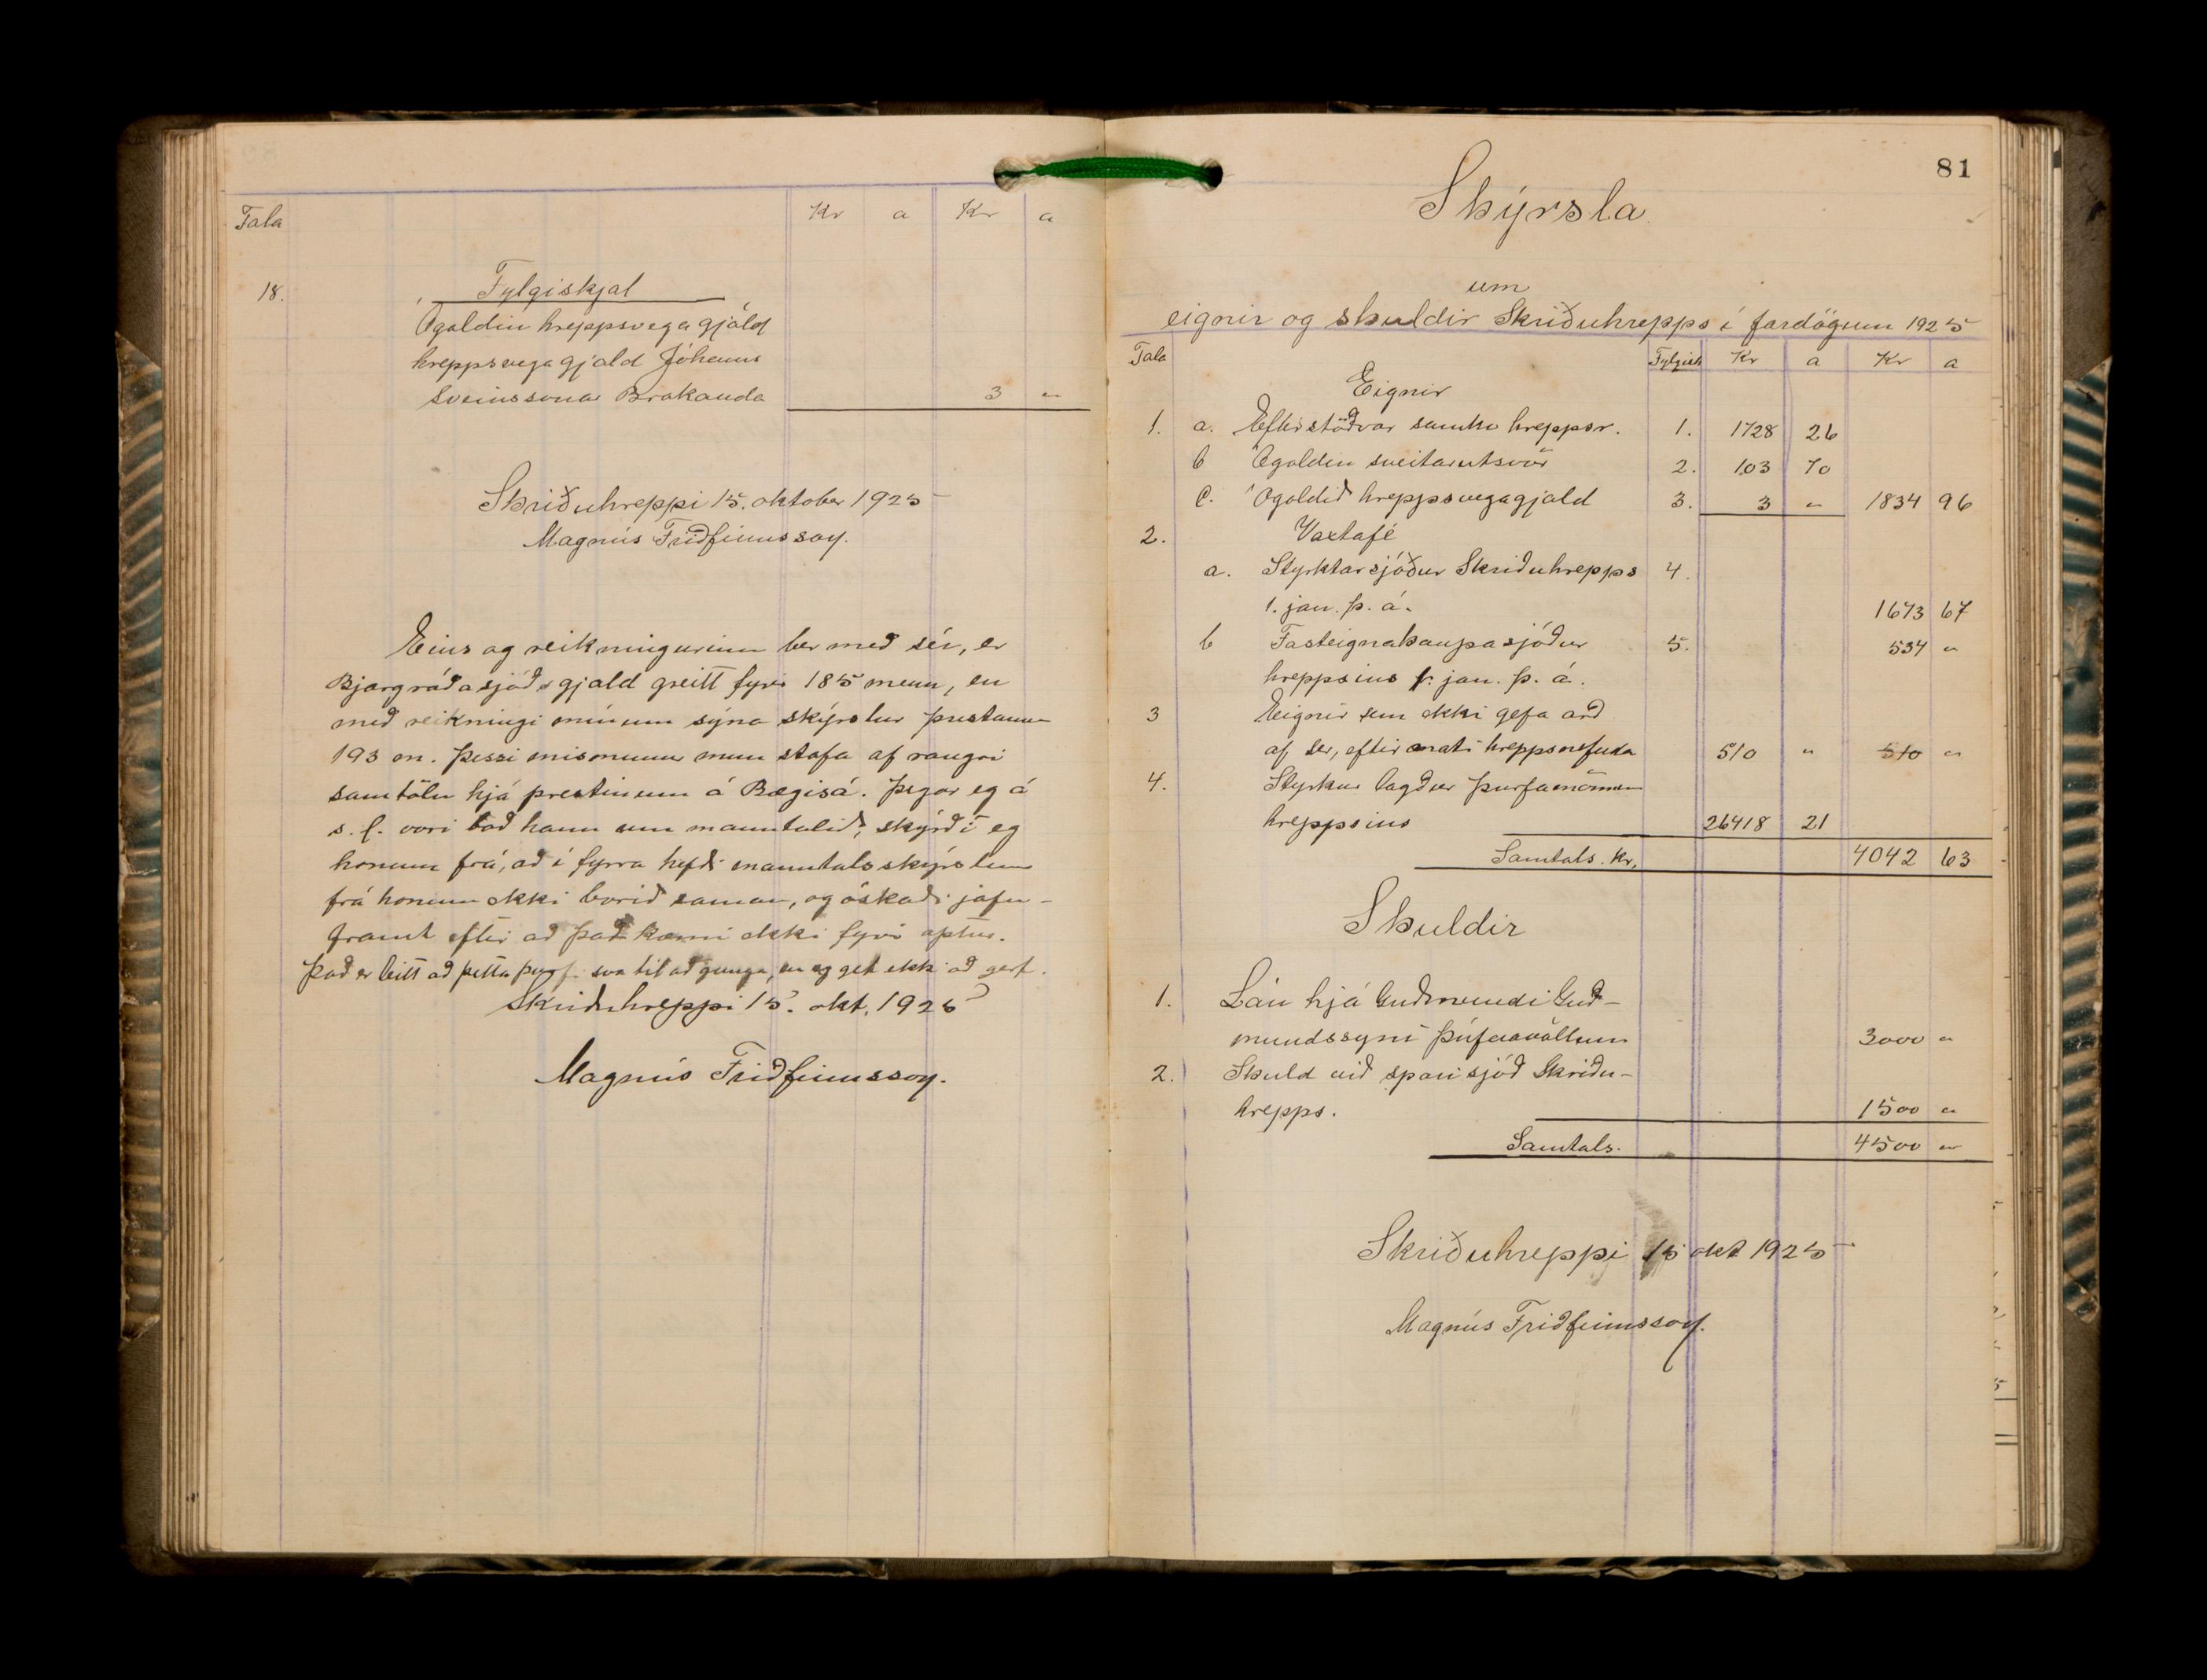 Tala Kr a Kr a
18. Fylgiskjal
Ógoldin hreppsvegagjöld
hreppsvegagjald Jóhanns
Sveinssonar Brakanda 3 "
Skriðuhreppi 15. oktober 1925
Magnús Friðfinnsson.
Eins og reikningurinn ber með sér, er
Bjargráðasjóðsgjald greitt fyrir 185 menn, en
með reikningi mínum sýna skýrslur prestanna
193 m. Þessi mismunur mun stafa af rangri
samtölu hjá prestinum á Bægisá. Þegar eg á
s. l. vori bað hann um manntalið, skýrði eg
honum frá, að í fyrra hefði manntalsskýrslum
frá honum ekki borið saman, og óskaði jafn-
framt eftir að það kæmi ekki fyrir aptur.
Það er leitt að þetta þurfi svo til að ganga, en eg get ekki að gert.
Skriðuhreppi 15. okt. 1925
Magnús Friðfinnsson.
81
Skýrsla
um
eignir og skuldir Skriðuhrepps í fardögum 1925
Tala Fylgisk Kr a Kr a
Eignir
1. a. Eftirstöðvar samkv hreppsr. 1. 1728 26
b Ógoldin sveitarutsvör 2. 103 70
c. Ógoldið hreppsvegagjald 3. 3 " 1834 96
2. Vaxtafé
a. Styrktarsjóður Skriðuhrepps 4.
1. jan. þ. á. 1673 67
b Fasteignakaupasjóður 5. 534 "
hreppsins 1. jan. þ. á.
3 Eignir sem ekki gefa arð
af ser, eftir mati hreppsnefnda 510 " 510 "
4. Styrkur lagður þurfamönnum
hreppsins 26418 21
Samtals. Kr. 4042 63
Skuldir
1. Lán hjá Guðmundi Guð-
mundssyni Þúfnavöllum 3000 "
2. Skuld við sparisjóð Skriðu-
hrepps. 1500 "
Samtals. 4500 "
Skriðuhreppi 15 okt 1925
Magnús Friðfinnsson.